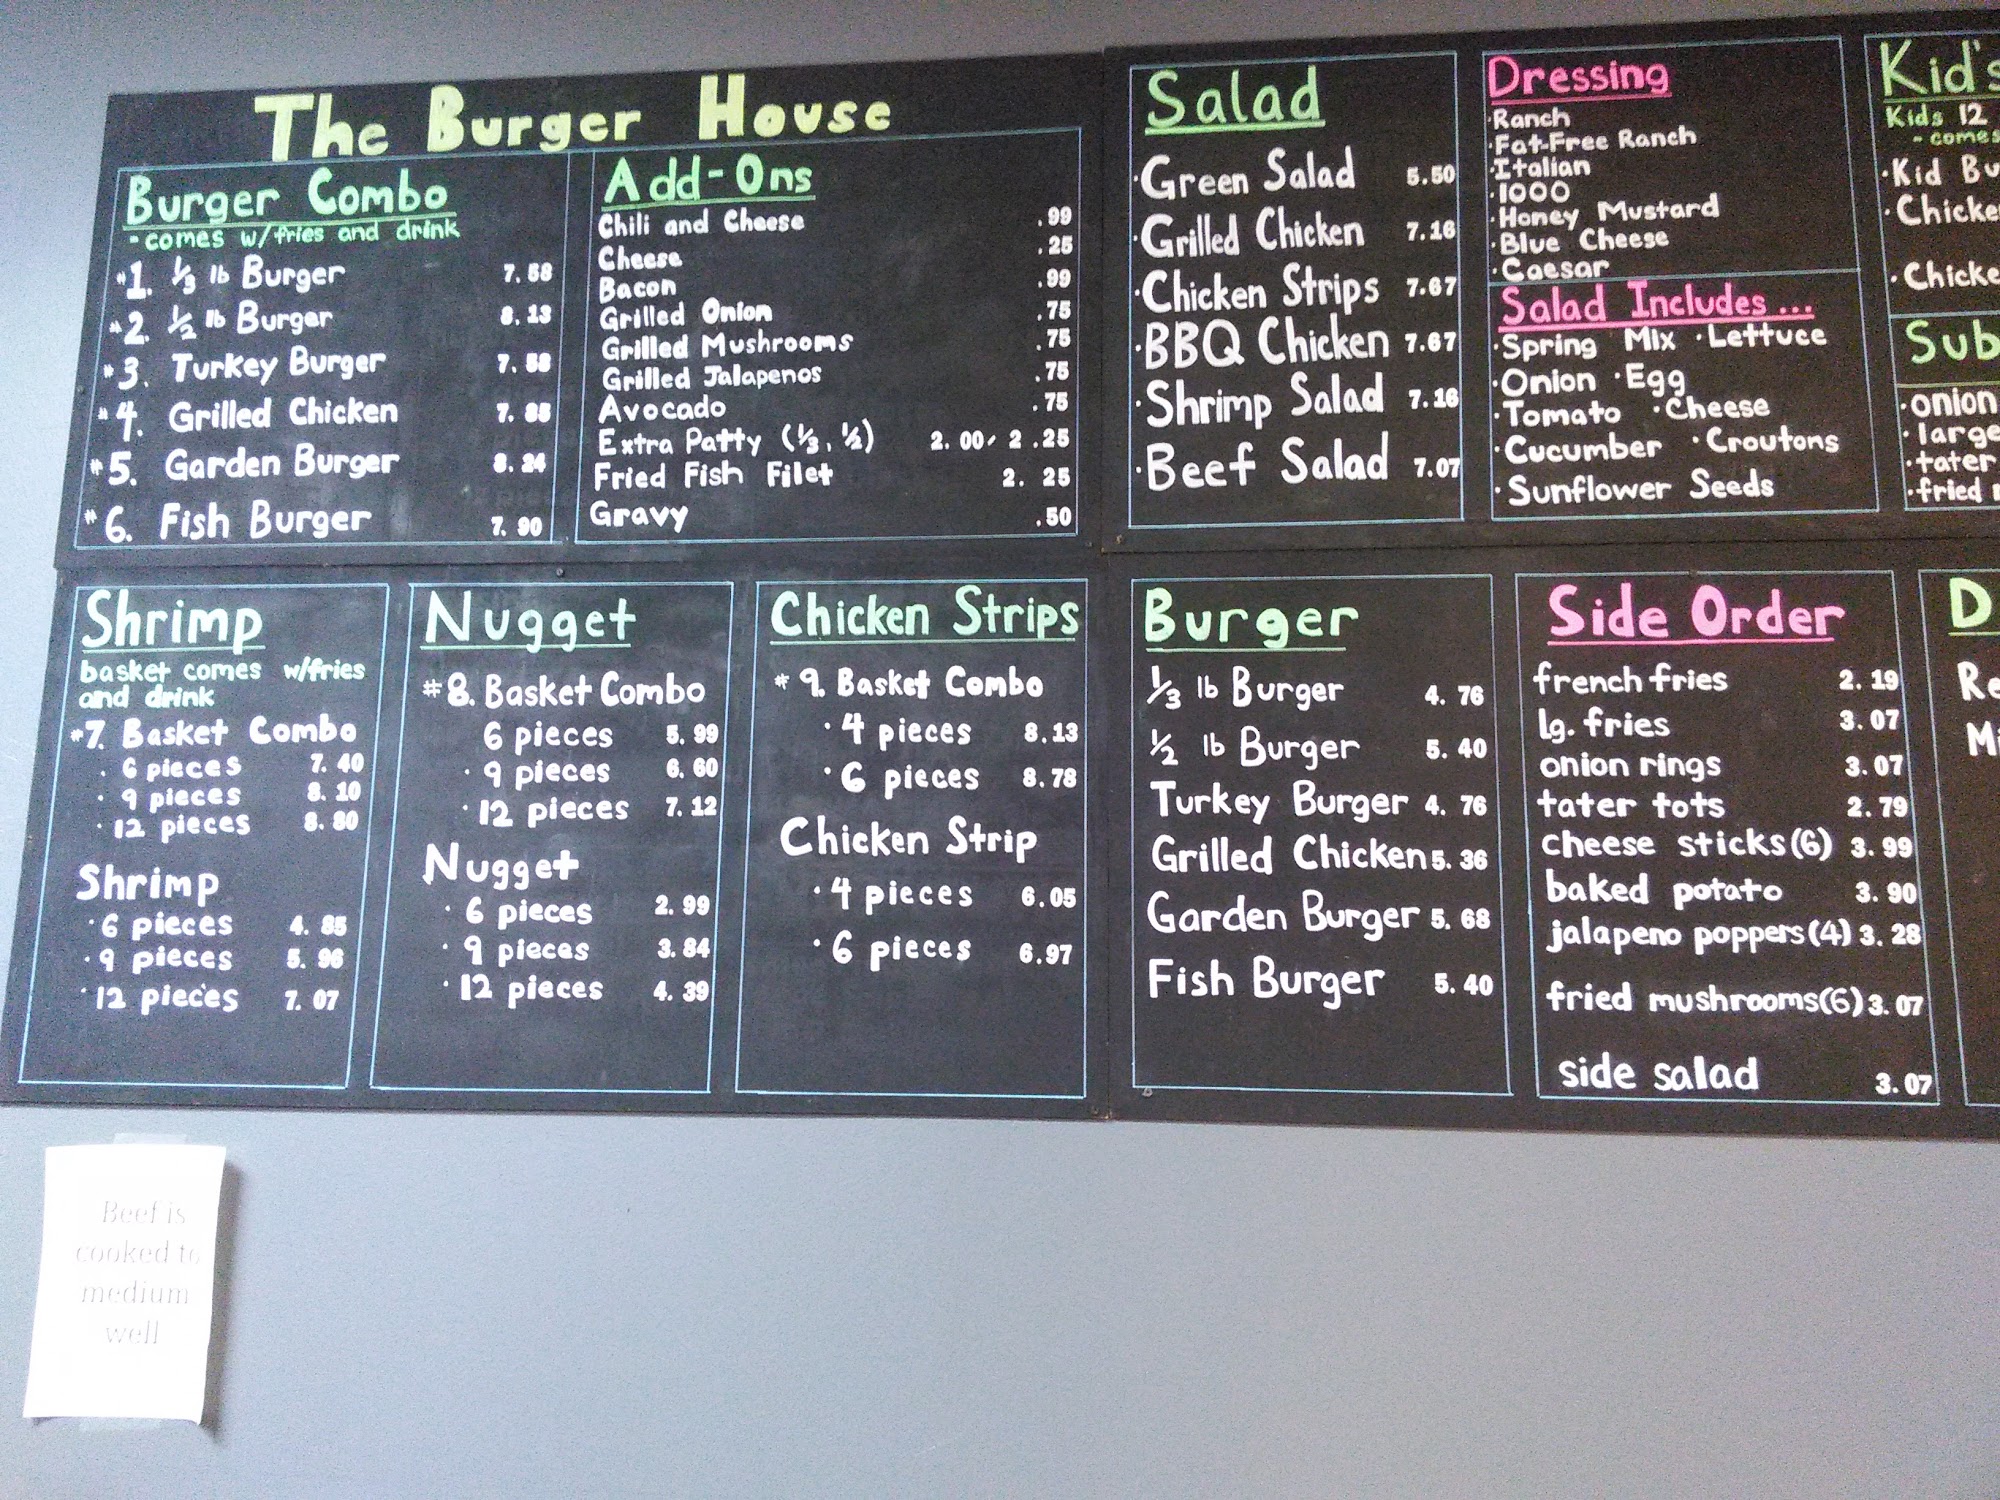 The Burger House
Burger Combo
- comes w/fries and drink
#1. 1/3 lb Burger 7.58
#2. 1/2 lb Burger 8.13
#3. Turkey Burger 7.58
#4. Grilled Chicken 7.85
#5. Garden Burger 8.24
#6. Fish Burger 7.90
Add-Ons
Chili and Cheese .99
Cheese .25
Bacon .99
Grilled Onion .75
Grilled Mushrooms .75
Grilled Jalapenos .75
Avocado .75
Extra Patty (1/3, 1/2) 2.00/ 2.25
Fried Fish Filet 2.25
Gravy .50
Salad
·Green Salad 5.50
·Grilled Chicken 7.16
·Chicken Strips 7.67
·BBQ Chicken 7.67
·Shrimp Salad 7.16
·Beef Salad 7.07
Dressing
·Ranch
·Fat-Free Ranch
·Italian
·1000
·Honey Mustard
·Blue Cheese
·Caesar
Salad Includes ...
·Spring Mix ·Lettuce
·Onion ·Egg
·Tomato ·Cheese
·Cucumber ·Croutons
·Sunflower Seeds
Kid's
Kids 12
- comes
·Kid Bu
·Chicke
·Chicke
Sub
·onion
·large
·tater
·fried
Shrimp
basket comes w/fries
and drink
#7. Basket Combo
· 6 pieces 7.40
· 9 pieces 8.10
· 12 pieces 8.80
Shrimp
· 6 pieces 4.85
· 9 pieces 5.96
· 12 pieces 7.07
Nugget
#8. Basket Combo
6 pieces 5.99
· 9 pieces 6.60
· 12 pieces 7.12
Nugget
· 6 pieces 2.99
· 9 pieces 3.84
· 12 pieces 4.39
Chicken Strips
#9. Basket Combo
· 4 pieces 8.13
· 6 pieces 8.78
Chicken Strip
· 4 pieces 6.05
· 6 pieces 6.97
Burger
1/3 lb Burger 4.76
1/2 lb Burger 5.40
Turkey Burger 4.76
Grilled Chicken 5.36
Garden Burger 5.68
Fish Burger 5.40
Side Order
french fries 2.19
lg. fries 3.07
onion rings 3.07
tater tots 2.79
cheese sticks(6) 3.99
baked potato 3.90
jalapeno poppers(4) 3.28
fried mushrooms(6) 3.07
side salad 3.07
D
Re
Mi
Beef is
cooked to
medium
well